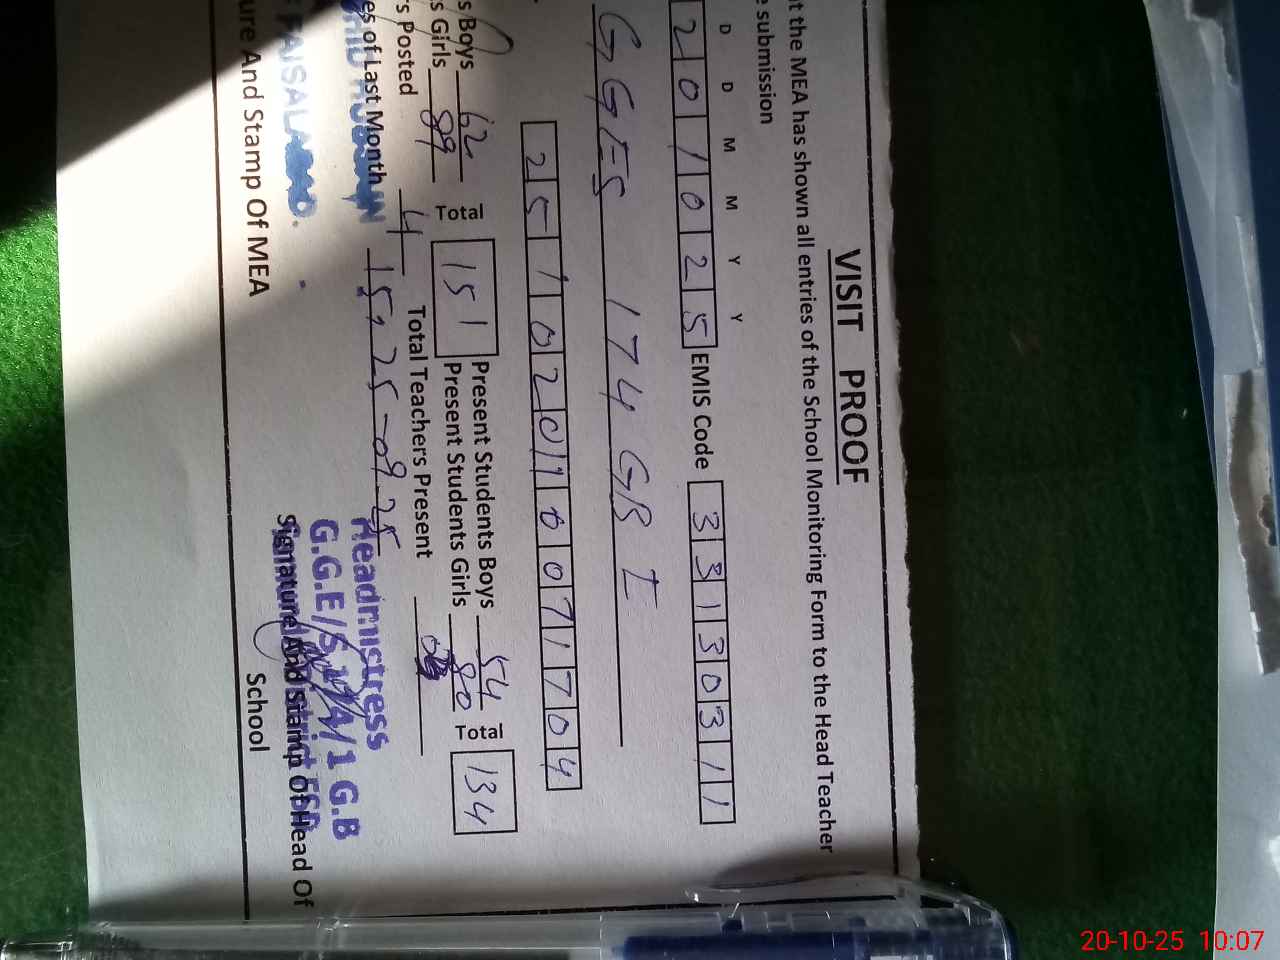 VISIT PROOF
t the MEA has shown all entries of the School Monitoring Form to the Head Teacher
e submission
D D M M Y Y
2 0 1 0 2 5 EMIS Code 3 3 1 3 0 3 1 1
GGES 174 GB I
2 5 1 0 2 0 1 0 0 7 1 7 0 4
s Boys 62 Total 151 Present Students Boys 54 Total 134
s Girls 89 Present Students Girls 80
rs Posted 4 Total Teachers Present
es of Last Month 15, 25-09-25
Headmistress
FAISALABAD.
G.G.E/S 174/1 G.B
ure And Stamp Of MEA
Signature And Stamp Of Head Of
School
20-10-25 10:07